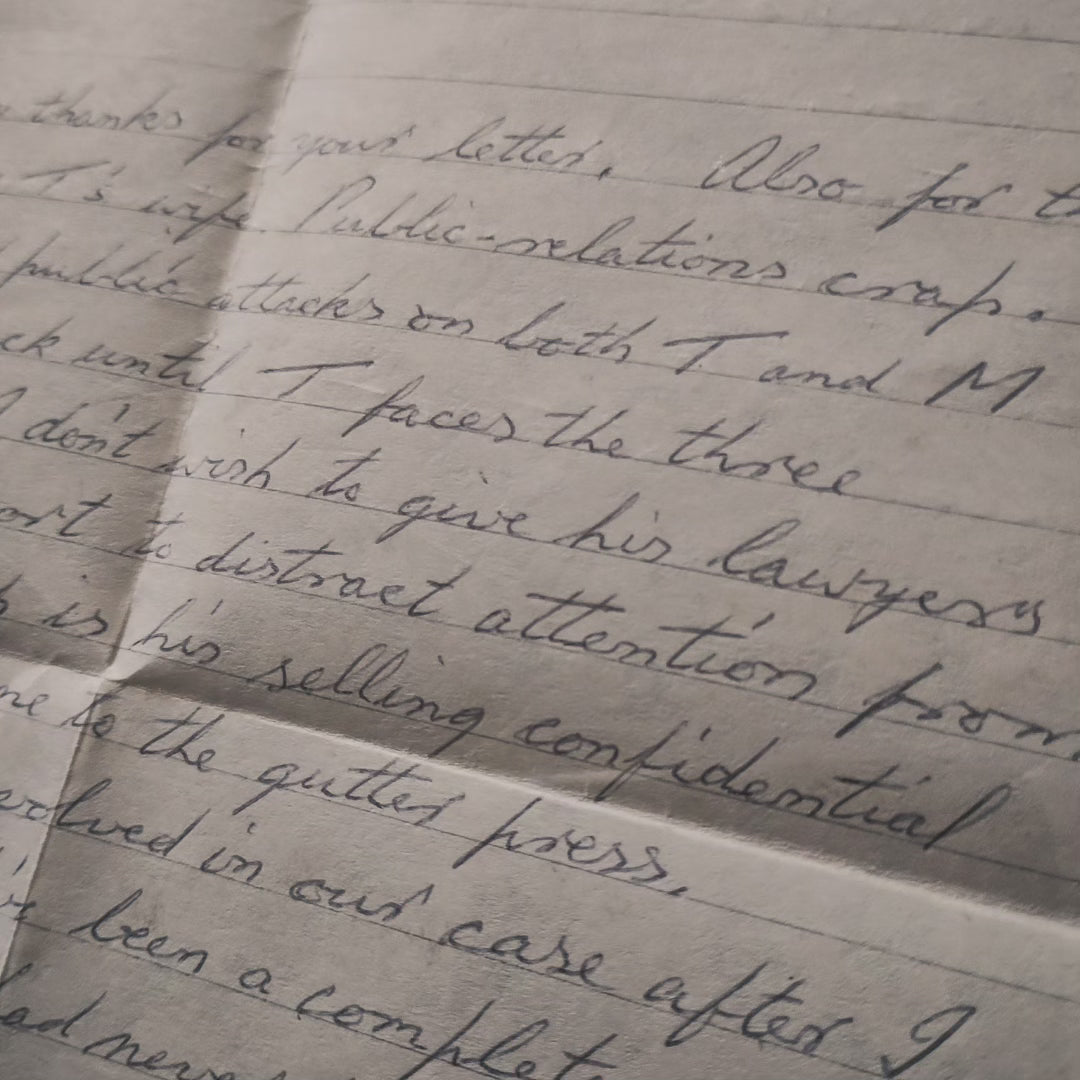 thanks for your letter. Also for th
T's wife Public-relations crap.
public attacks on both T and M
ck until T faces the three
I don't wish to give his lawyers
ort to distract attention from
is his selling confidential
me to the gutter press.
volved in our case after I
been a complet
had never